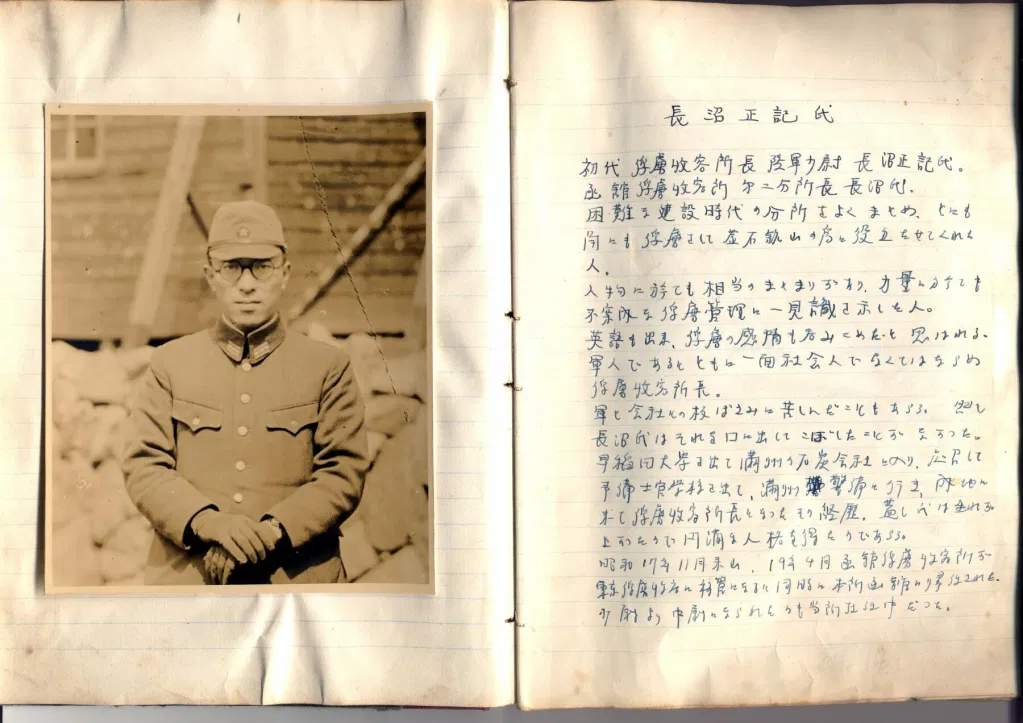 長沼正記氏
初代 俘虜收容所長 陸軍少尉 長沼正記氏。
函館俘虜收容所 第二分所長 長沼氏.
困難な建設時代の分所をよくまとめ、とにも
角にも俘虜をして釜石鉱山の為に役立たせてくれた
人。
人物に於ても相当のまとまりがあり、力量に於ても
不案内な俘虜管理に一見識を示した人。
英語も出来、俘虜の感情も呑みこめたと思はれる.
軍人であるとともに一面社会人でなくてはならぬ
俘虜收容所長。
軍と会社との板ばさみに苦しんだこともあらう。然し
長沼氏はそれを口に出してこぼしたことが なかった。
早稲田大学を出て満州の石炭会社に入り、応召して
予備士官学校を出て、満州警備に行き、内地に
来て俘虜收容所長となったその経歴、蓋し氏は
上 ので円満な人格を得たのであらう。
昭和17年11月来山、19年4月函館俘虜收容所が
東京俘虜收容所に移管になると同時に本所函館に帰任された.
少尉より中尉になられたのも当所在任中だった。